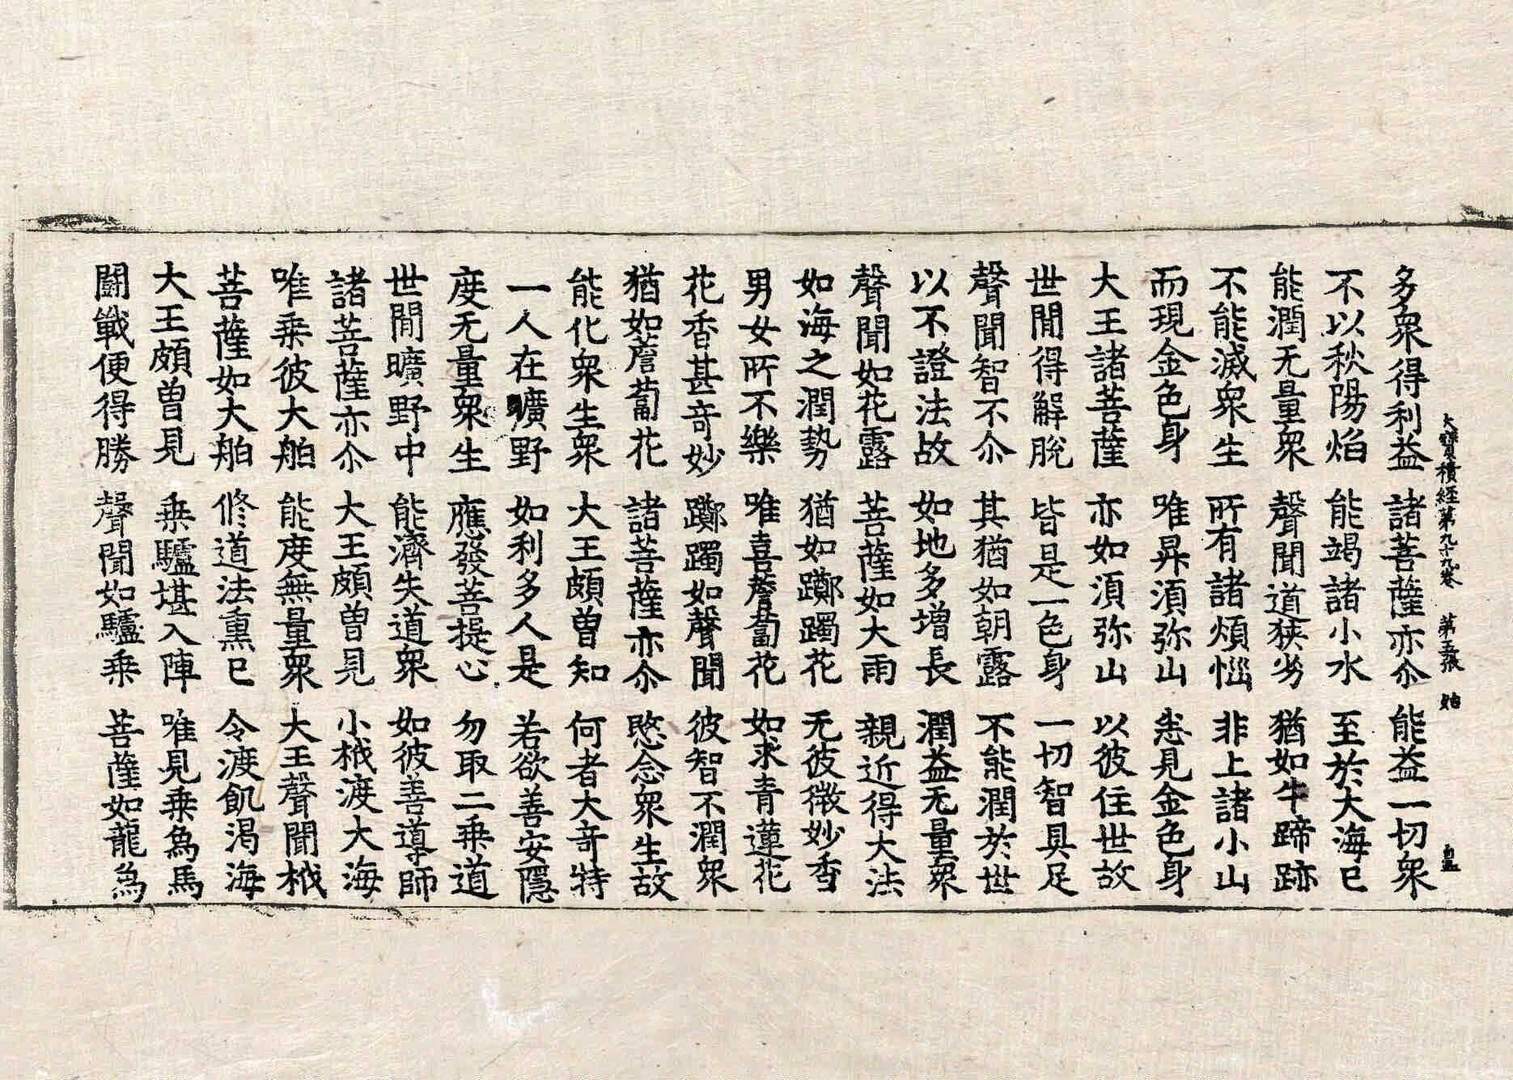 大寶積經第九十九卷 第五張 始
多衆得利益 諸菩薩亦尒 能益一切衆
不以秋陽焰 能竭諸小水 至於大海已
能潤无量衆 聲聞道狹劣 猶如牛蹄跡
不能滅衆生 所有諸煩惱 非上諸小山
而現金色身 唯昇湏弥山 悉見金色身
大王諸菩薩 亦如湏弥山 以彼住世故
世間得解脫 皆是一色身 一切智具足
聲聞智不尒 其猶如朝露 不能潤於世
以不證法故 如地多增長 潤益无量衆
聲聞如花露 菩薩如大雨 親近得大法
如海之潤勢 猶如躑躅花 无彼微妙香
男女所不樂 唯喜薝蔔花 如求青蓮花
花香甚奇妙 躑躅如聲聞 彼智不潤衆
猶如薝蔔花 諸菩薩亦尒 愍念衆生故
能化衆生衆 大王頗曾知 何者大奇特
一人在曠野 如利多人是 若欲善安隱
度无量衆生 應發菩提心 勿取二乗道
世間曠野中 能濟失道衆 如彼善導師
諸菩薩亦尒 大王頗曾見 小栰渡大海
唯乗彼大舶 能度無量衆 大王聲聞栰
菩薩如大舶 修道法熏已 令渡飢渴海
大王頗曾見 乗驢堪入陣 唯見乗爲馬
鬪戰便得勝 聲聞如驢乗 菩薩如龍爲